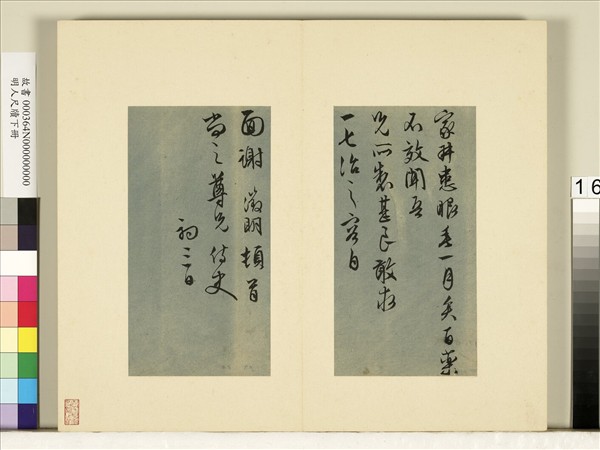 家姊患眼垂一月矣百藥
不效聞吾
兄所製甚良敢求
一七治之容自
面謝 徵明頓首
尚之尊兄侍史
初三日
故書 000364N000000000
明人尺牘下冊
16